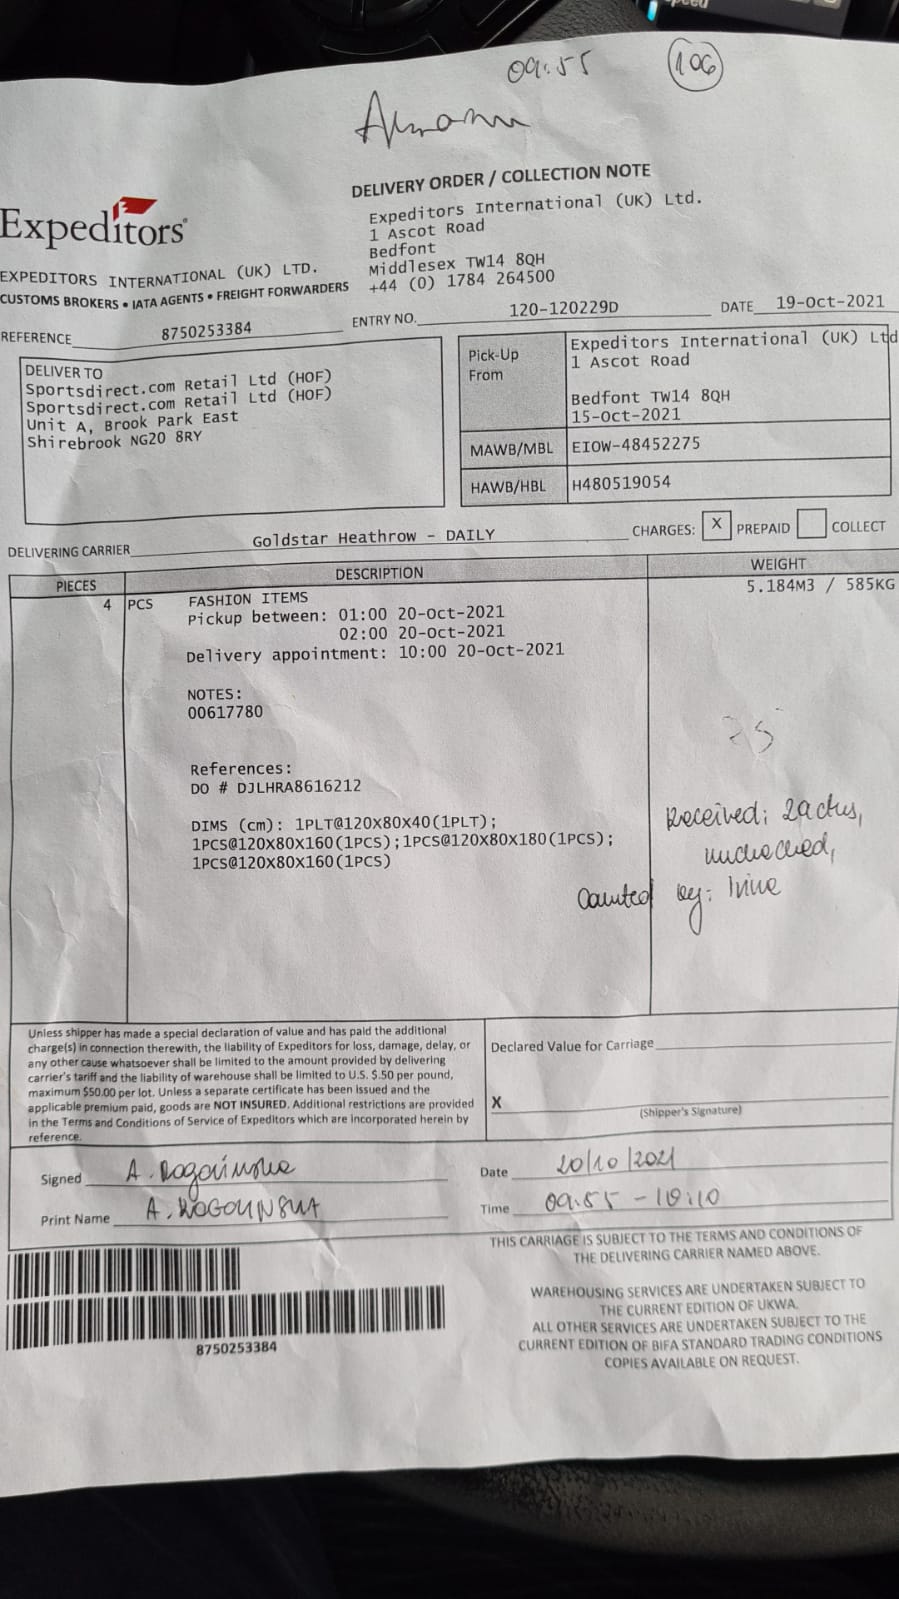 09:55
106
DELIVERY ORDER / COLLECTION NOTE
Expeditors
Expeditors International (UK) Ltd.
1 Ascot Road
Bedfont
Middlesex TW14 8QH
+44 (0) 1784 264500
EXPEDITORS INTERNATIONAL (UK) LTD.
CUSTOMS BROKERS • IATA AGENTS • FREIGHT FORWARDERS
REFERENCE 8750253384 ENTRY NO. 120-120229D DATE 19-Oct-2021
DELIVER TO
Sportsdirect.com Retail Ltd (HOF)
Sportsdirect.com Retail Ltd (HOF)
Unit A, Brook Park East
Shirebrook NG20 8RY
Pick-Up From
Expeditors International (UK) Ltd
1 Ascot Road
Bedfont TW14 8QH
15-Oct-2021
MAWB/MBL EIOW-48452275
HAWB/HBL H480519054
DELIVERING CARRIER Goldstar Heathrow - DAILY CHARGES: X PREPAID COLLECT
PIECES DESCRIPTION WEIGHT
4 PCS FASHION ITEMS 5.184M3 / 585KG
Pickup between: 01:00 20-Oct-2021
02:00 20-Oct-2021
Delivery appointment: 10:00 20-Oct-2021
NOTES:
00617780
References:
DO # DJLHRA8616212
DIMS (cm): 1PLT@120X80X40(1PLT);
1PCS@120X80X160(1PCS);1PCS@120X80X180(1PCS);
1PCS@120X80X160(1PCS)
Received:
by:
Unless shipper has made a special declaration of value and has paid the additional
charge(s) in connection therewith, the liability of Expeditors for loss, damage, delay, or
any other cause whatsoever shall be limited to the amount provided by delivering
carrier's tariff and the liability of warehouse shall be limited to U.S. $.50 per pound,
maximum $50.00 per lot. Unless a separate certificate has been issued and the
applicable premium paid, goods are NOT INSURED. Additional restrictions are provided
in the Terms and Conditions of Service of Expeditors which are incorporated herein by
reference.
Declared Value for Carriage
X
(Shipper's Signature)
Signed
Date 20/10/2021
Print Name
Time 09:55 - 10:10
THIS CARRIAGE IS SUBJECT TO THE TERMS AND CONDITIONS OF
THE DELIVERING CARRIER NAMED ABOVE.
WAREHOUSING SERVICES ARE UNDERTAKEN SUBJECT TO
THE CURRENT EDITION OF UKWA.
ALL OTHER SERVICES ARE UNDERTAKEN SUBJECT TO THE
CURRENT EDITION OF BIFA STANDARD TRADING CONDITIONS
COPIES AVAILABLE ON REQUEST.
8750253384